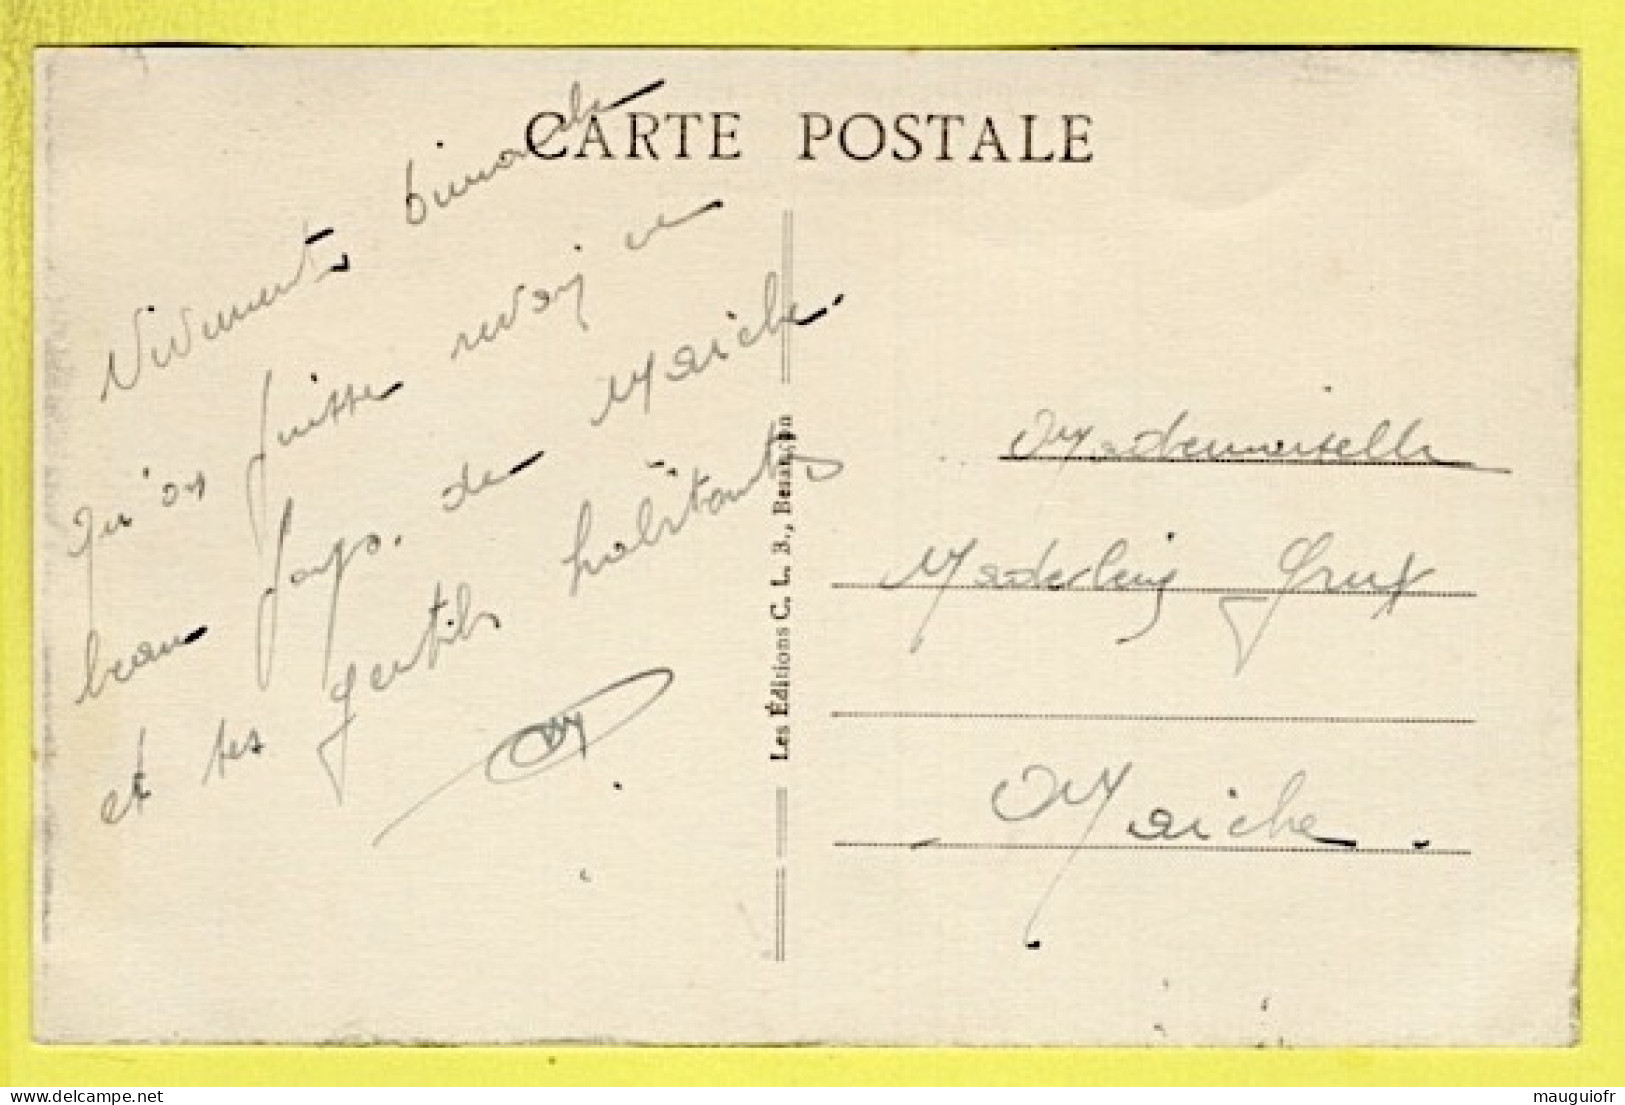 CARTE POSTALE
Vivement dimanche
qu'on puisse revoir ce
beau pays de Maiche.
et ses gentils habitants
M
Les Éditions C. L. B., Besançon
Mademoiselle
Madeleine
Maiche.
delcampe.net
mauguiofr